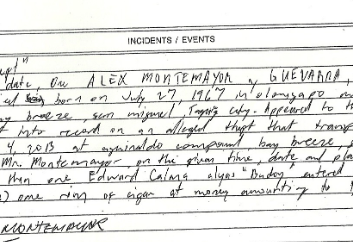 INCIDENTS / EVENTS
date, One ALEX MONTEMAYOR y GUEVARRA,
born on July 27, 1967 in olongapo
breeze, san miguel, Taguig city. Appeared to
into record on an alleged theft that
4, 2013 at aguinaldo compound, bay breeze,
Mr. Montemayor, on the given time, date and
then one Edward Calma alyas "Buboy", entered
one ream of cigar at money amounting to
MONTEMAYOR